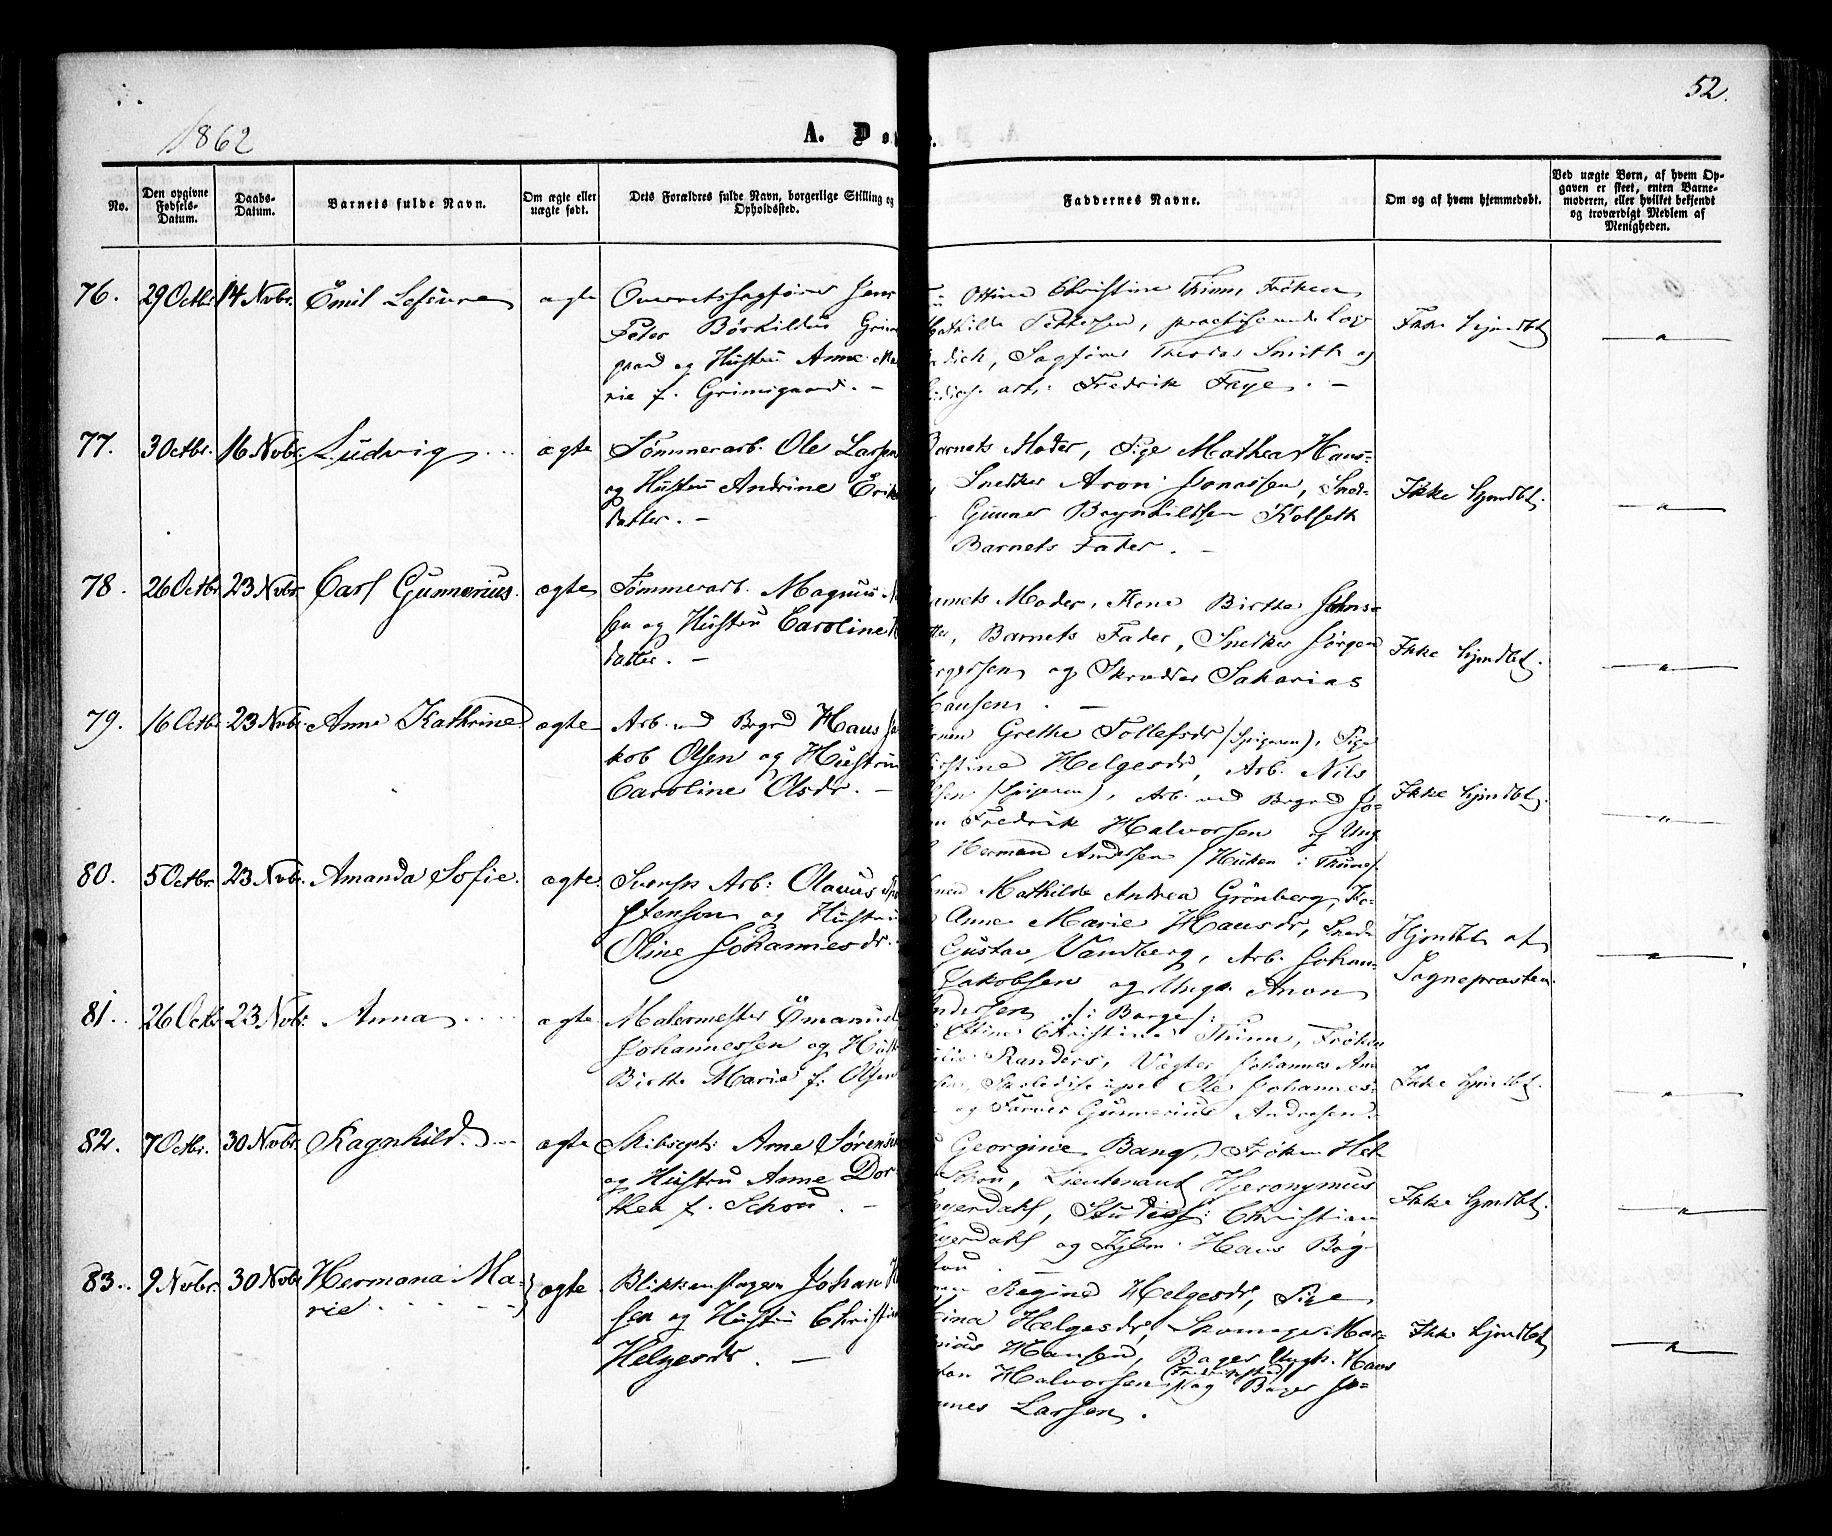 52.
1862
A. Dø
No.
Den opgivne
Fødsels-
Datum.
Daabs-
Datum.
Barnets fulde Navn.
Om ægte eller
uægte født.
Dets Forældres fulde Navn, borgerlige Stilling og
Opholdssted.
Faddernes Navne.
Om og af hvem hjemmedøbt.
Ved uægte Børn, af hvem Op-
gaven er skeet, enten Barne-
moderen, eller hvilket bekjendt
og troværdigt Medlem af
Menigheden.
76. 29 Octbr. 14 Novbr. Emil ægte
Overretssagfører Jens
Peter Grims
gaard og Hustru Anne Ma
rie f. Grimsgaard. —
Ottine Christine Thune, Frøken
Mathilde Pettersen, practiserende Læge
Sagfører Smith og
art. Fredrik Faye. —
Ikke hjmdbt
77. 3 Octbr. 16 Novbr. Ludvig ægte
Tømmerarb. Ole Larsen
og Hustru Andrine Erik
datter. —
Barnets Moder, Pige Mathea Hans-
Snedker Aron Jonassen, Sned-
Gunner Kolseth
Barnets Fader. —
Ikke hjmdbt.
78. 26 Octbr. 23 Novbr. Carl Gunnerius. ægte
Tømmerarb. Magnus
sen og Hustru Caroline
datter. —
Barnets Moder, Kone Birthe Johns-
tter, Barnets Fader, Snedker Jørgen
rgersen og Skrædder Sakarias
Hansen. —
Ikke hjmdbt.
79. 16 Octbr. 23 Novbr. Anne Kathrine ægte
Arb. ved Bogrd Hans Ja
kob Olsen og Hustru
Caroline Olsdr. —
Grethe Tollefsdr (Spigeren), Pige
istine Helgesdr, Arb. Nils
lsen (Spigeren), Arb. ved Bogrd Jo-
n Fredrik Halvorsen og Ung
Herman Andersen
Ikke hjmdbt.
80. 5 Octbr. 23 Novbr. Amanda Sofie. ægte.
Svensk Arb: Olaus
stenson og Hustru
Oline Johannesdr.
Mathilde Andrea Grönberg, Ko-
Anne Marie Hansdr, Sned
Gustav Vandberg, Arb. Johan-
Jakobsen og Ungk. Anon
Andersen /: Borge :/
Hjmdbt af
Sogneprästen.
81. 26 Octbr. 23 Novbr. Anna ægte.
Malermester Emanuel
Johannessen og Hust
Birthe Marie f. Olsen
Ottine Christine Thune, Frøken
Randers, Vægter Johannes An
Ole Johannes-
og Farver Gunnerius Andresen.
Ikke hjmdbt.
82. 7 Octbr. 30 Novbr. Ragnhild ægte
Skibscpt: Arne Sørensen
og Hustru Anne Dor-
thea f. Schou. —
Georgine Bang, Frøken Hel
Schou, Lieutenant Hieronymus
eyerdahl, Studios: Christian
eyerdahl og Hans Bag-
Ikke hjmdbt.
83. 9 Novbr. 30 Novbr. Hermana Ma-
rie ægte
Blikkenslager Johan H
sen og Hustru Christi
Helgesdr. —
Regine Helgesdr, Pige
tina Helgesdr, Skomager Mar-
Hansen, Bager Ungk. Hans
Halvorsen (Fredrikstad) og Bager Jo-
nnes Larsen.
Ikke hjmdbt